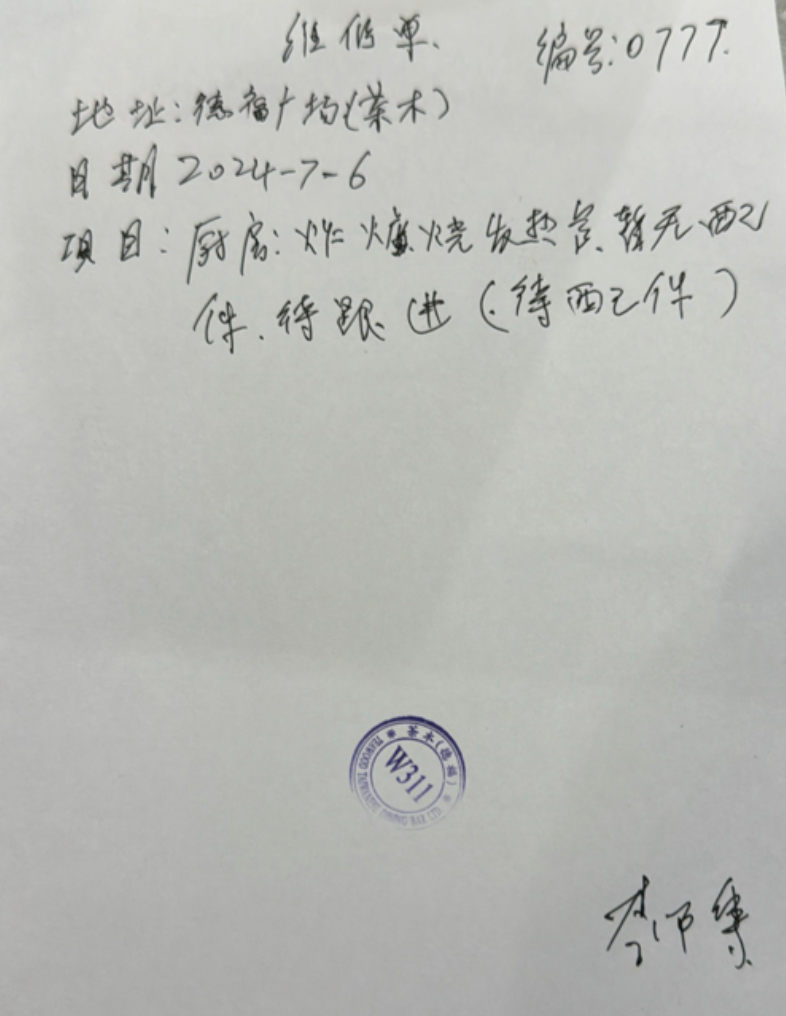 维修单.
编号:0777.
地址:德福广场(茶木)
日期 2024-7-6
项目:厨房:炸炉烧发热管.暂无配
件.待跟进(.待配件)
茶木(德福)
W311
DINING BAR LTD.
李师傅